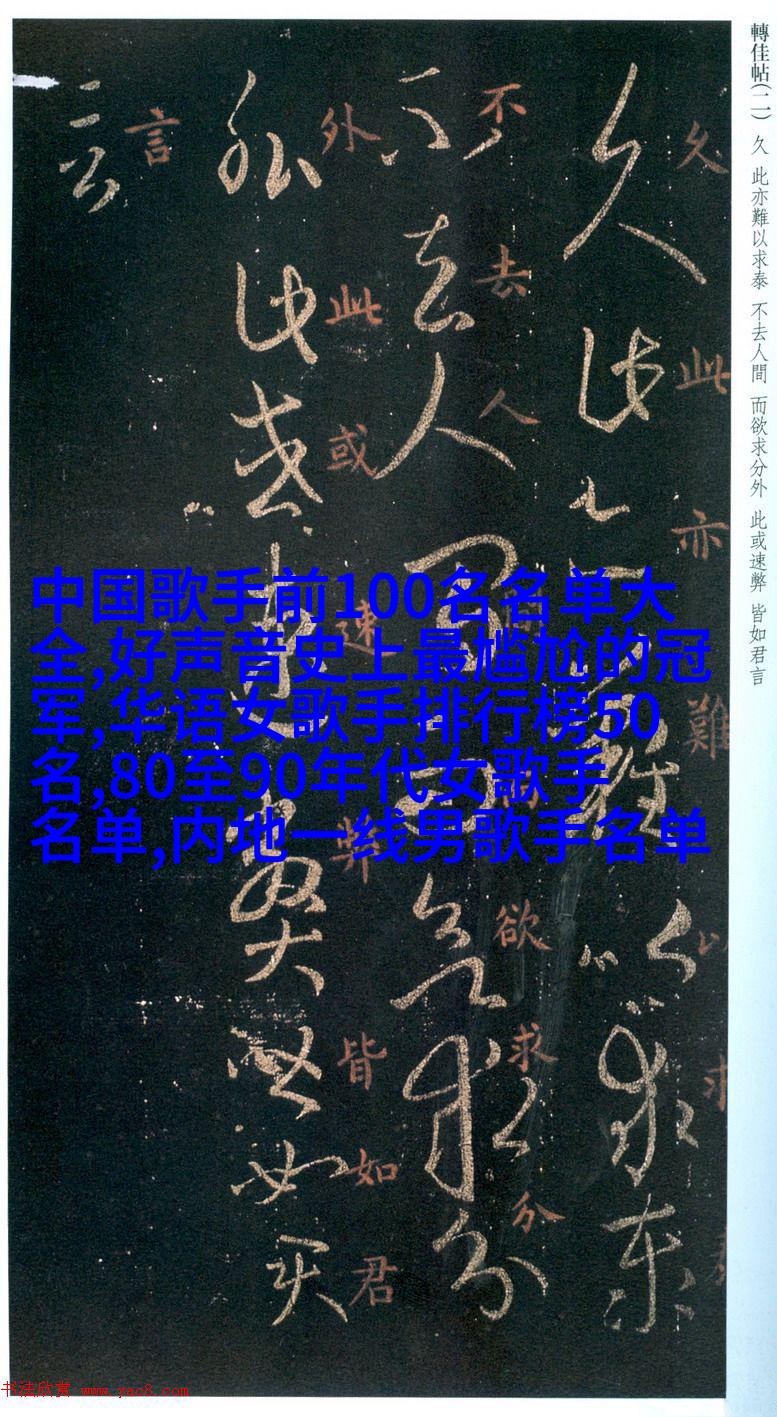 轉佳帖(二) 久 此亦難以求泰 不去人間 而欲求分外 此或速弊 皆如君言
久此亦難以求泰
久此亦難以求
不去人間而欲求分
不去人間而欲求分
外此或速弊皆如君
外此或速弊皆如君
言
言
中国歌手前100名名单大
全,好声音史上最尴尬的冠
军,华语女歌手排行榜50
名,80至90年代女歌手
名单,内地一线男歌手名单
书法欣赏 www.yac8.com